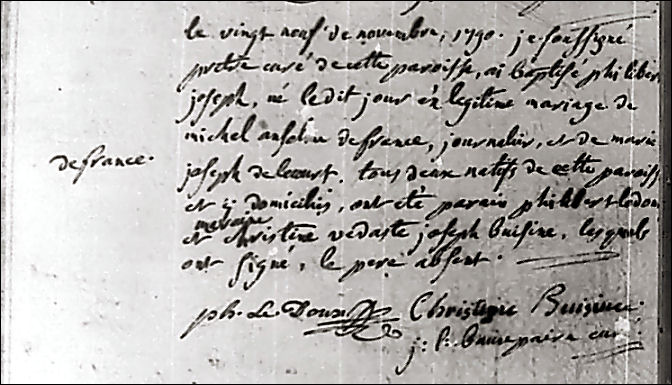 le vingt neuf de novembre, 1790. je soussigné
prêtre curé de cette paroisse, ai baptisé philiber
joseph, né ledit jour en legitime mariage de
michel anselme defrance, journalier, et de marie
defrance.
joseph delcourt, tous deux natifs de cette paroiss
et ici domiciliés, ont été parain philibert ledoux
maraine
et christine vedaste joseph buisine, lesquels
ont signé, le pere absent.
ph. Le Doux Christine Buisine
j: f: beaurepaire curé